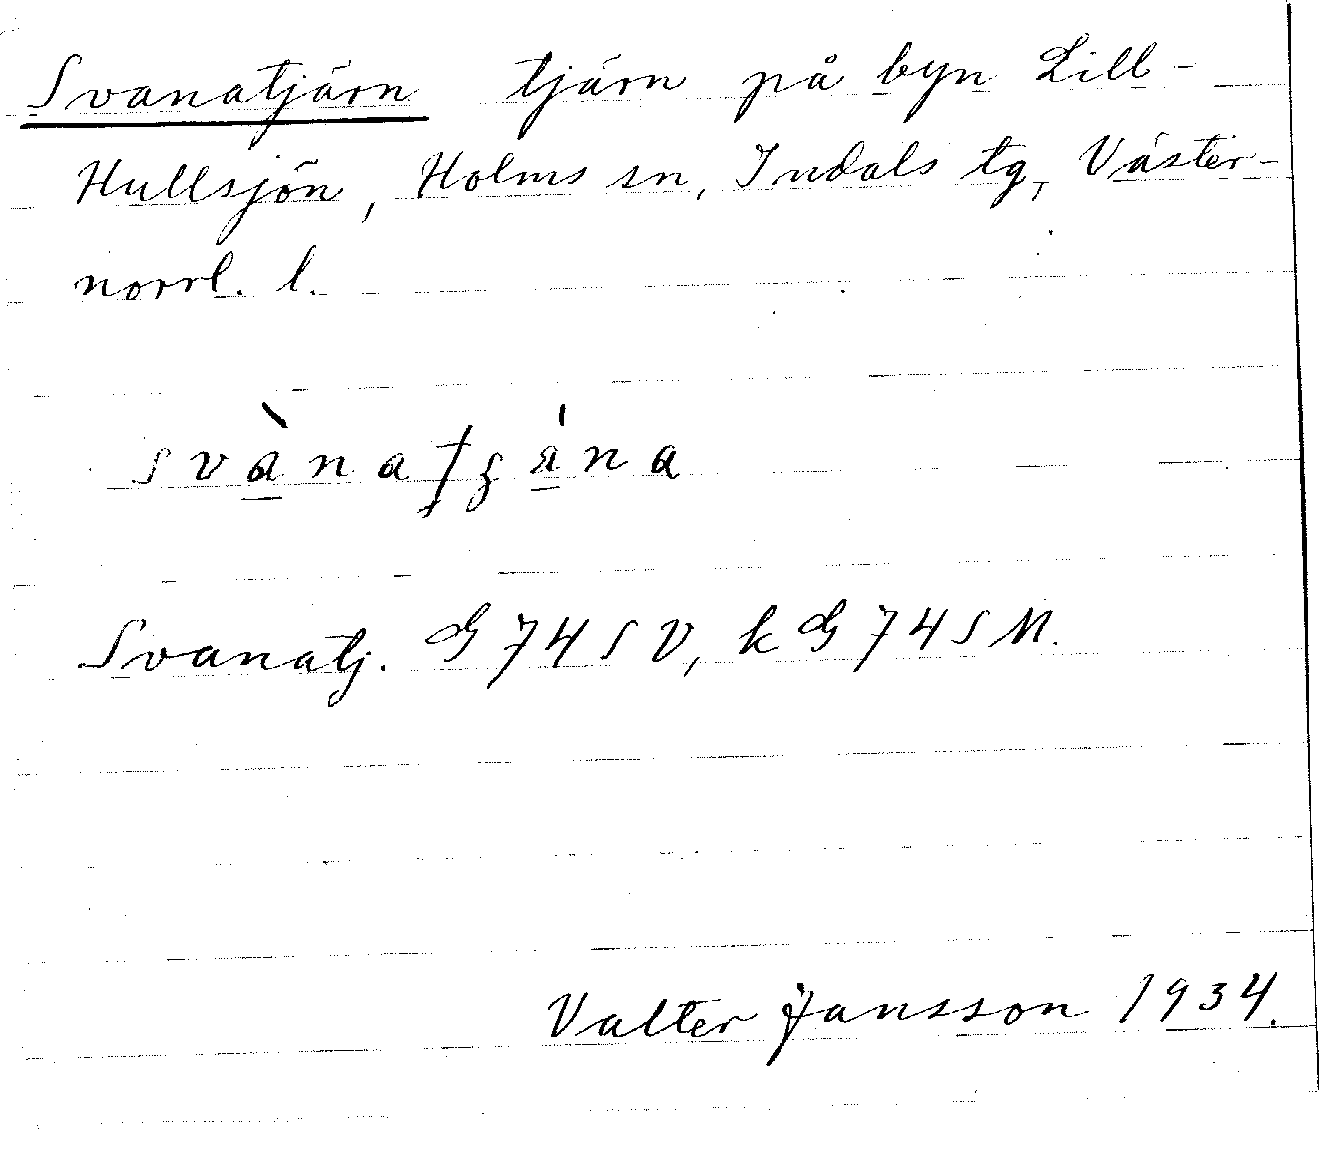 Svanatjärn tjärn på byn Lill-
Hullsjön, Holms sn, Indals tg, Väster-
norrl. l.
Svanatj. G74SV, k G74SM.
Valter Jansson 1934.